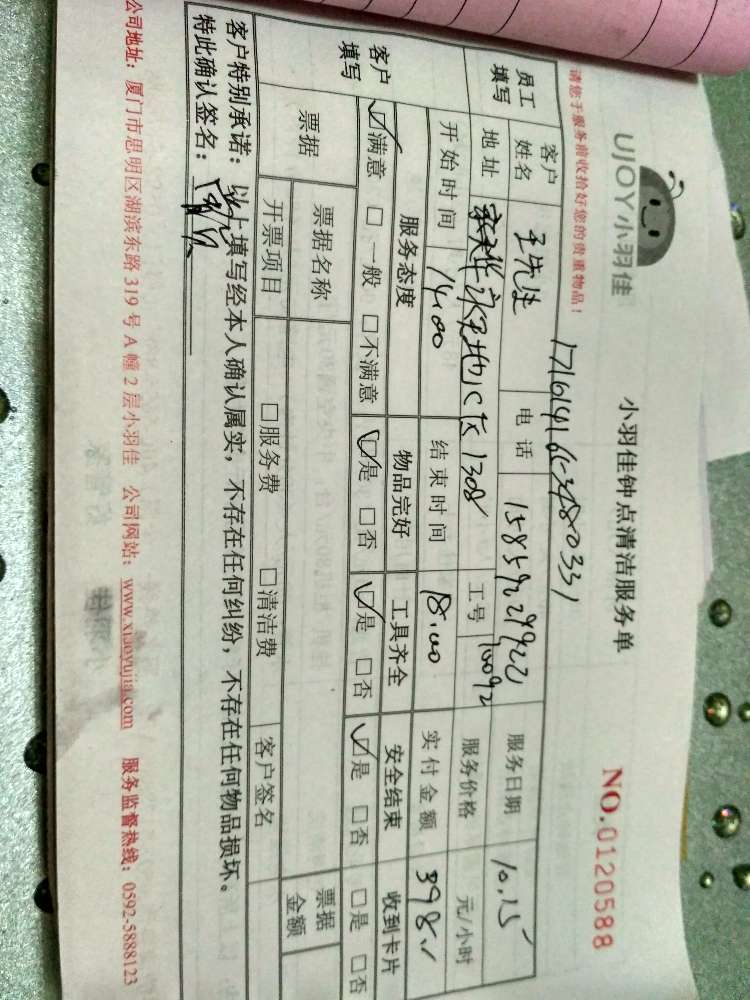 UJOY小羽佳
小羽佳钟点清洁服务单
NO.0120588
请您于服务前收拾好您的贵重物品！
员工填写
客户姓名 王先生 电话 15859229922 服务日期 10.15
地址 天地1C区1308 工号 10092 服务价格 元/小时
开始时间 14:00 结束时间 18:00 实付金额 398
客户填写
服务态度 物品完好 工具齐全 安全结束 收到卡片
☑满意 □一般 □不满意 ☑是 □否 ☑是 □否 ☑是 □否 □是 □否
票据 票据名称 票据金额
开票项目 □服务费 □清洁费 客户签名
客户特别承诺：以上填写经本人确认属实，不存在任何纠纷，不存在任何物品损坏。
特此确认签名：
公司地址：厦门市思明区湖滨东路319号A幢2层小羽佳 公司网站：www.xiaoyujia.com 服务监督热线：0592-5888123